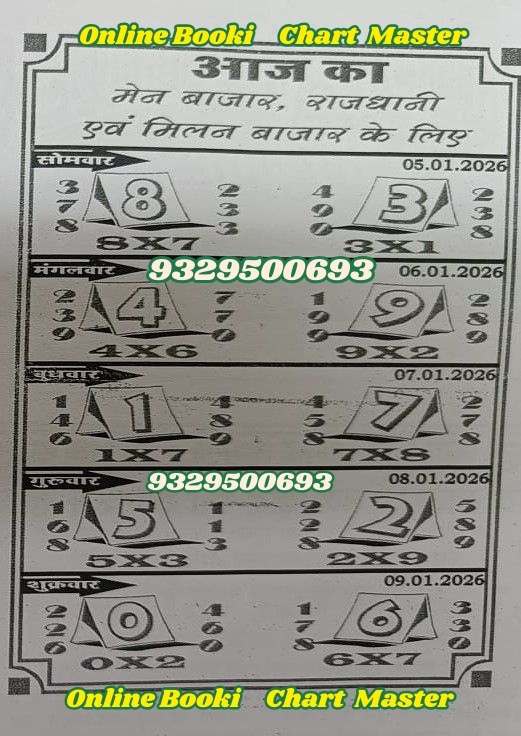 Online Booki Chart Master
आज का
मेन बाजार, राजधानी
एवं मिलन बाजार के लिए
सोमवार 05.01.2026
3 8 2 4 3 2
7 3 0 3
8 3 0 8
8X7 3X1
मंगलवार 9329500693 06.01.2026
2 4 7 1 9 2
3 7 0 8
9 0 0 9
4X6 9X2
बुधवार 07.01.2026
1 1 4 4 7 2
4 8 5 7
6 9 8 8
1X7 7X8
गुरुवार 9329500693 08.01.2026
1 5 1 2 2 5
6 1 2 8
8 3 8 9
5X3 2X9
शुक्रवार 09.01.2026
2 0 4 1 6 3
2 6 7 3
6 0 8 0
0X2 6X7
Online Booki Chart Master